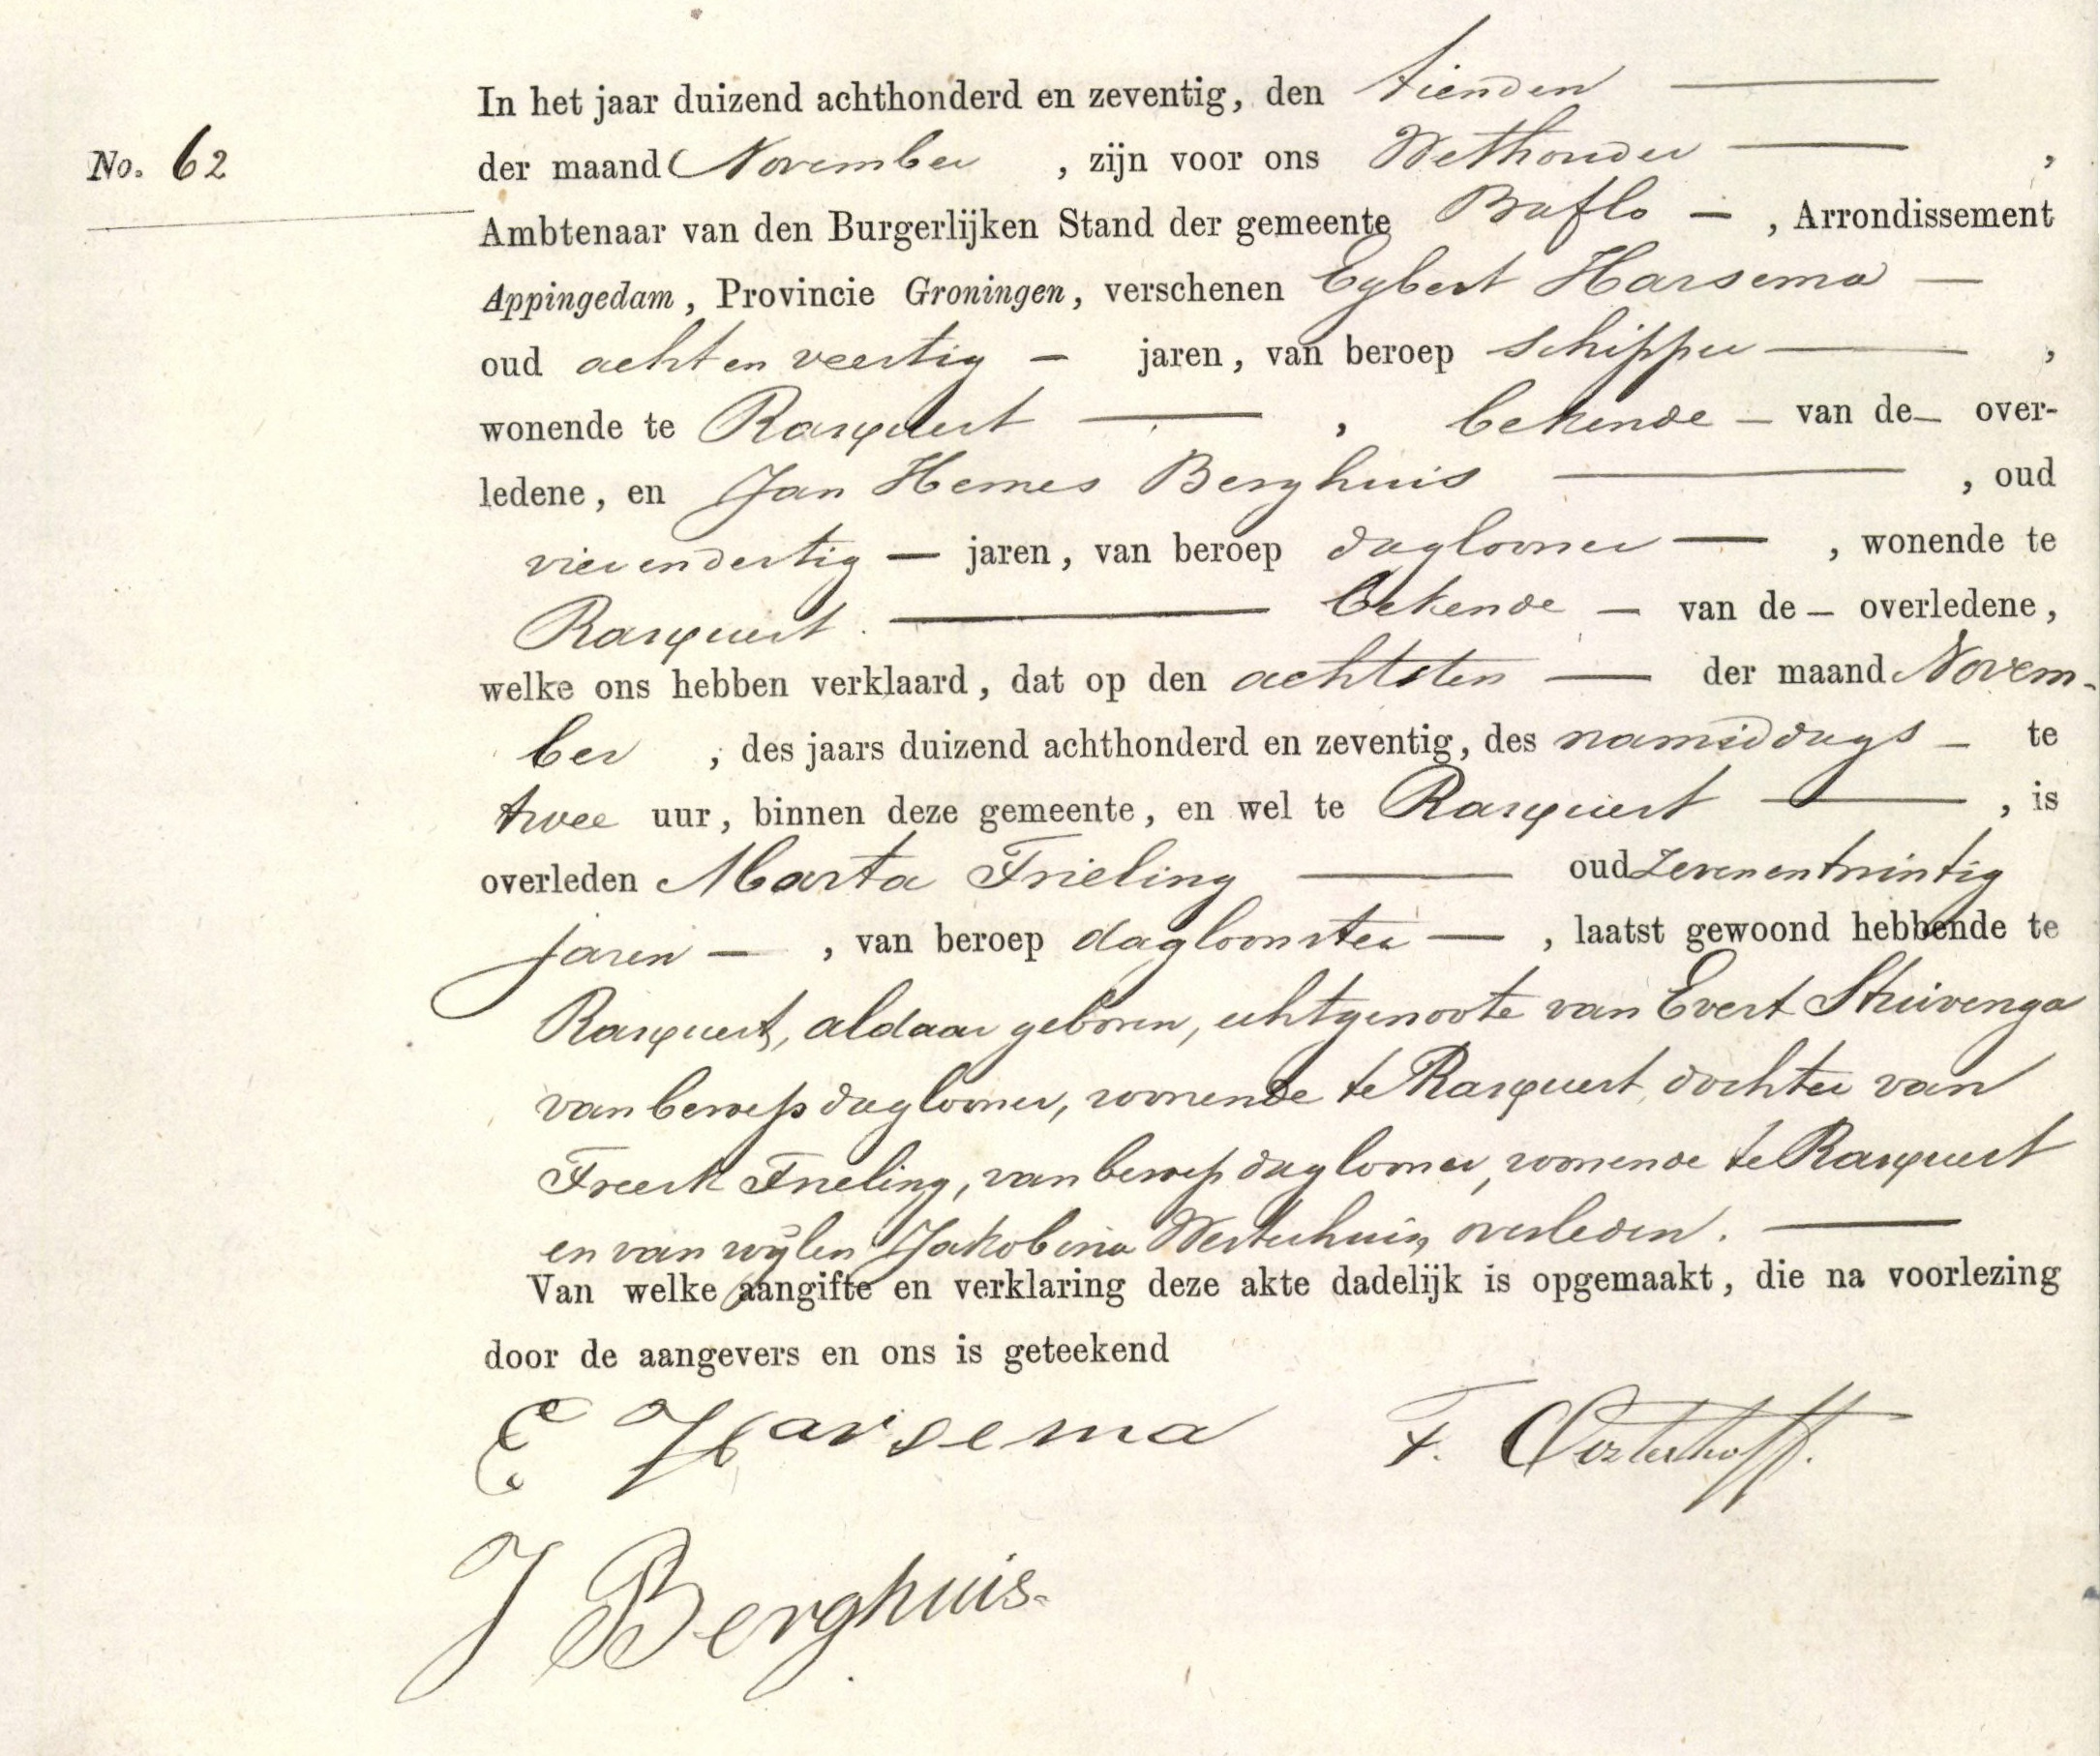 No. 62
In het jaar duizend achthonderd en zeventig, den tienden
der maand November, zijn voor ons Wethouder,
Ambtenaar van den Burgerlijken Stand der gemeente Baflo, Arrondissement
Appingedam, Provincie Groningen, verschenen Egbert Harsema
oud acht en veertig jaren, van beroep schipper,
wonende te Rasquert, bekende van de overledene, en Jan Hemes Berghuis, oud
vierendertig jaren, van beroep daglooner, wonende te
Rasquert. bekende van de overledene,
welke ons hebben verklaard, dat op den achtsten der maand Novem-
ber, des jaars duizend achthonderd en zeventig, des namiddags te
twee uur, binnen deze gemeente, en wel te Rasquert, is
overleden Marta Frieling oud zevenentwintig
jaren, van beroep dagloonster, laatst gewoond hebbende te
Rasquert, aldaar geboren, echtgenoote van Evert Stuivenga
van beroep daglooner, wonende te Rasquert, dochter van
Freerk Frieling, van beroep daglooner, wonende te Rasquert
en van wijlen Jakobina Westerhuis, overleden.
Van welke aangifte en verklaring deze akte dadelijk is opgemaakt, die na voorlezing
door de aangevers en ons is geteekend
E Harsema F. Oosterhoff.
J Berghuis.